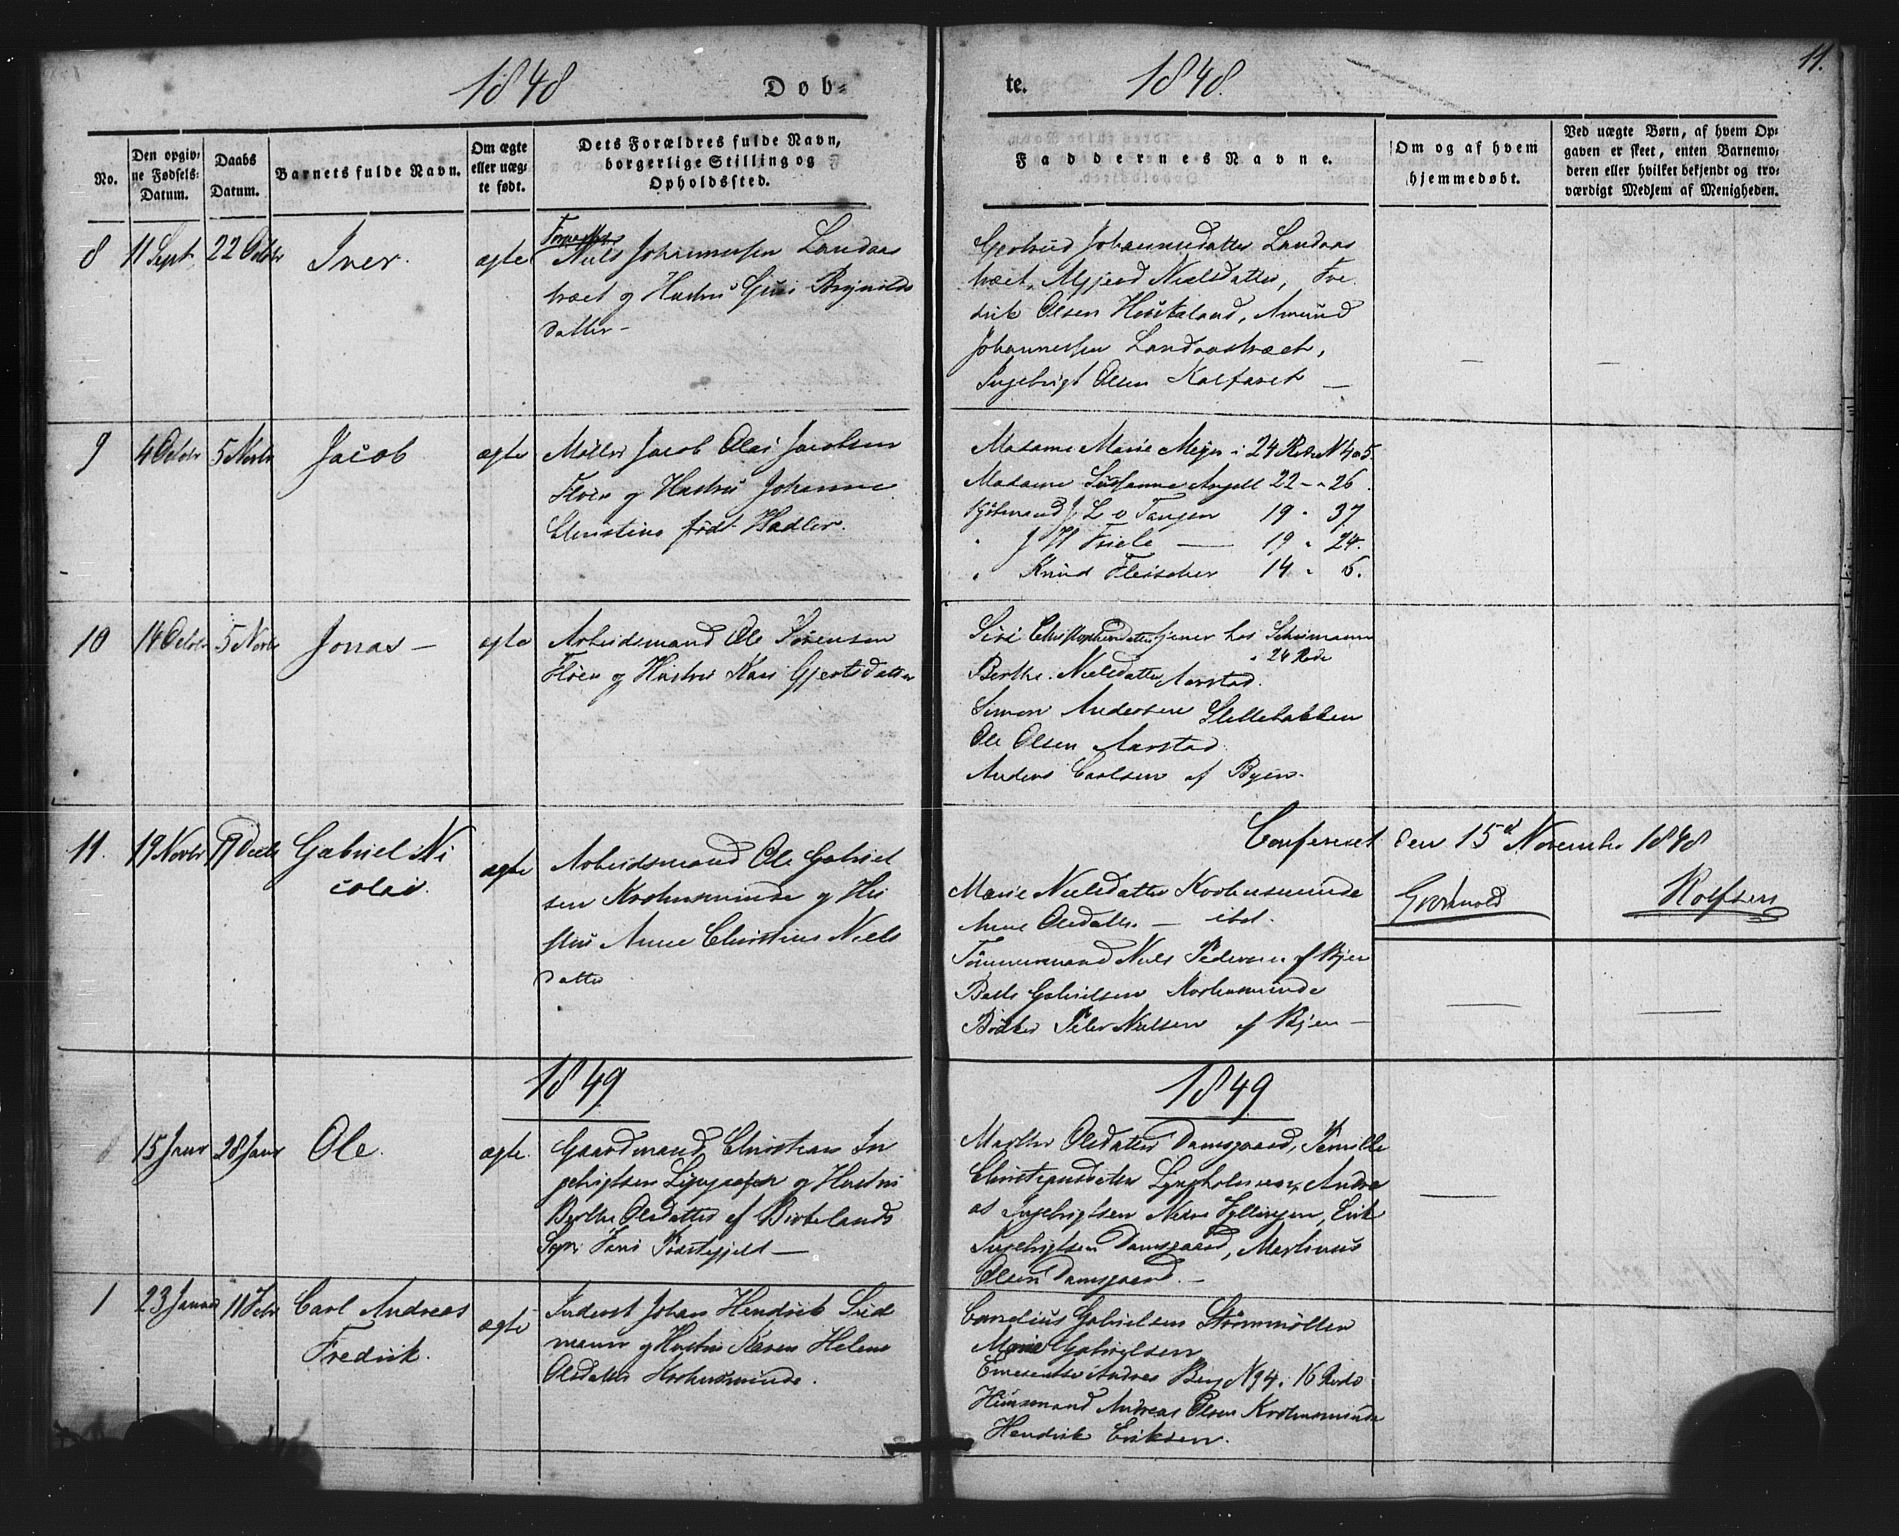 1848
Døb-
te.
1848.
11.
No.
Den opgiv-
ne Fødsels-
Datum.
Daabs
Datum.
Barnets fulde Navn.
Om ægte
eller uæg-
te født.
Dets Forældres fulde Navn,
borgerlige Stilling og
Opholdssted.
Faddernes Navne.
Om og af hvem
hjemmedøbt.
Ved uægte Børn, af hvem Op-
gaven er skeet, enten Barnemo-
deren eller hvilket bekjendt og tro-
værdigt Medlem af Menigheden.
8 11 Sept 22 Octobr Iver. ægte
Niels Johannessen Landaas
træet og Hustru Guri Brynilds
datter -
Gertrud Johannesdatter Landaas
træet, Nielsdatter, Fre
drik Olsen Haukeland, Amund
Johannessen Landaastræet,
Ingebrigt Olsen Kalfaret -
9 4 Octobr 5 Novbr Jacob ægte
Møller Jacob Olai Jacobsen
Fløen og Hustru Johanne
Christine født Hadler.
Madame Marie Meyer i 24 Rode N 405
Madame Susanne Angell 22 - " 26.
Kjøbmand J L v Tangen 19 " 37
" J H Friele - 19 " 24.
" Knud Fleischer 14 " 6.
10 14 Octobr 5 Novbr Jonas - ægte
Arbeidsmand Ole Sørensen
Fløen og Hustru Kari Gjertsdatter
Siri Christophersdatter tjener hos
i 24 Rode
Berthe Nielsdatter Aarstad.
Simon Andersen Slettebakken
Ole Olsen Aarstad
Anders Carlsen af Byen.
11. 19 Novbr 17 Decbr Gabriel Ni
colai. ægte
Arbeidsmand Ole Gabriel
sen Krohnsminde og Hu
stru Anne Christine Niels
datter
Confereret den 15d November 1848
Rolfsen
Marie Nielsdatter Krohnsminde
Anne Olsdatter - ibid.
Tømmermand Niels Pedersen af Byen
Gabrielsen Krohnsminde
Bødker Peter Nielsen af Byen -
1849
1849
15 Janr 28 Janr Ole. ægte.
Gaardmand Christian In
gebrigtsen og Hustru
Berthe Olsdatter af Birkelands
Sogn Fane Præstegjeld -
Marthe Olsdatter Damsgaard, Pernille
Christiansdatter Andre
as Ingebrigtsen Nedre Fyllingen, Erik
Ingebrigtsen Damsgaard, Martinus
Olsen Damsgaard. -
1 23 Januar 11 Febr Carl Andreas
Fredrik. ægte
Inderst Johan Hendrik
mann og Hustru Karen Helene
Olsdatter Krohnsminde.
Gabrielsen Strømmøllen
Marie Gabrielsen
Andreas Berg N 94. 16 Rode
Huusmand Andreas Olsen Krohnsminde
Hendrik Eriksen.